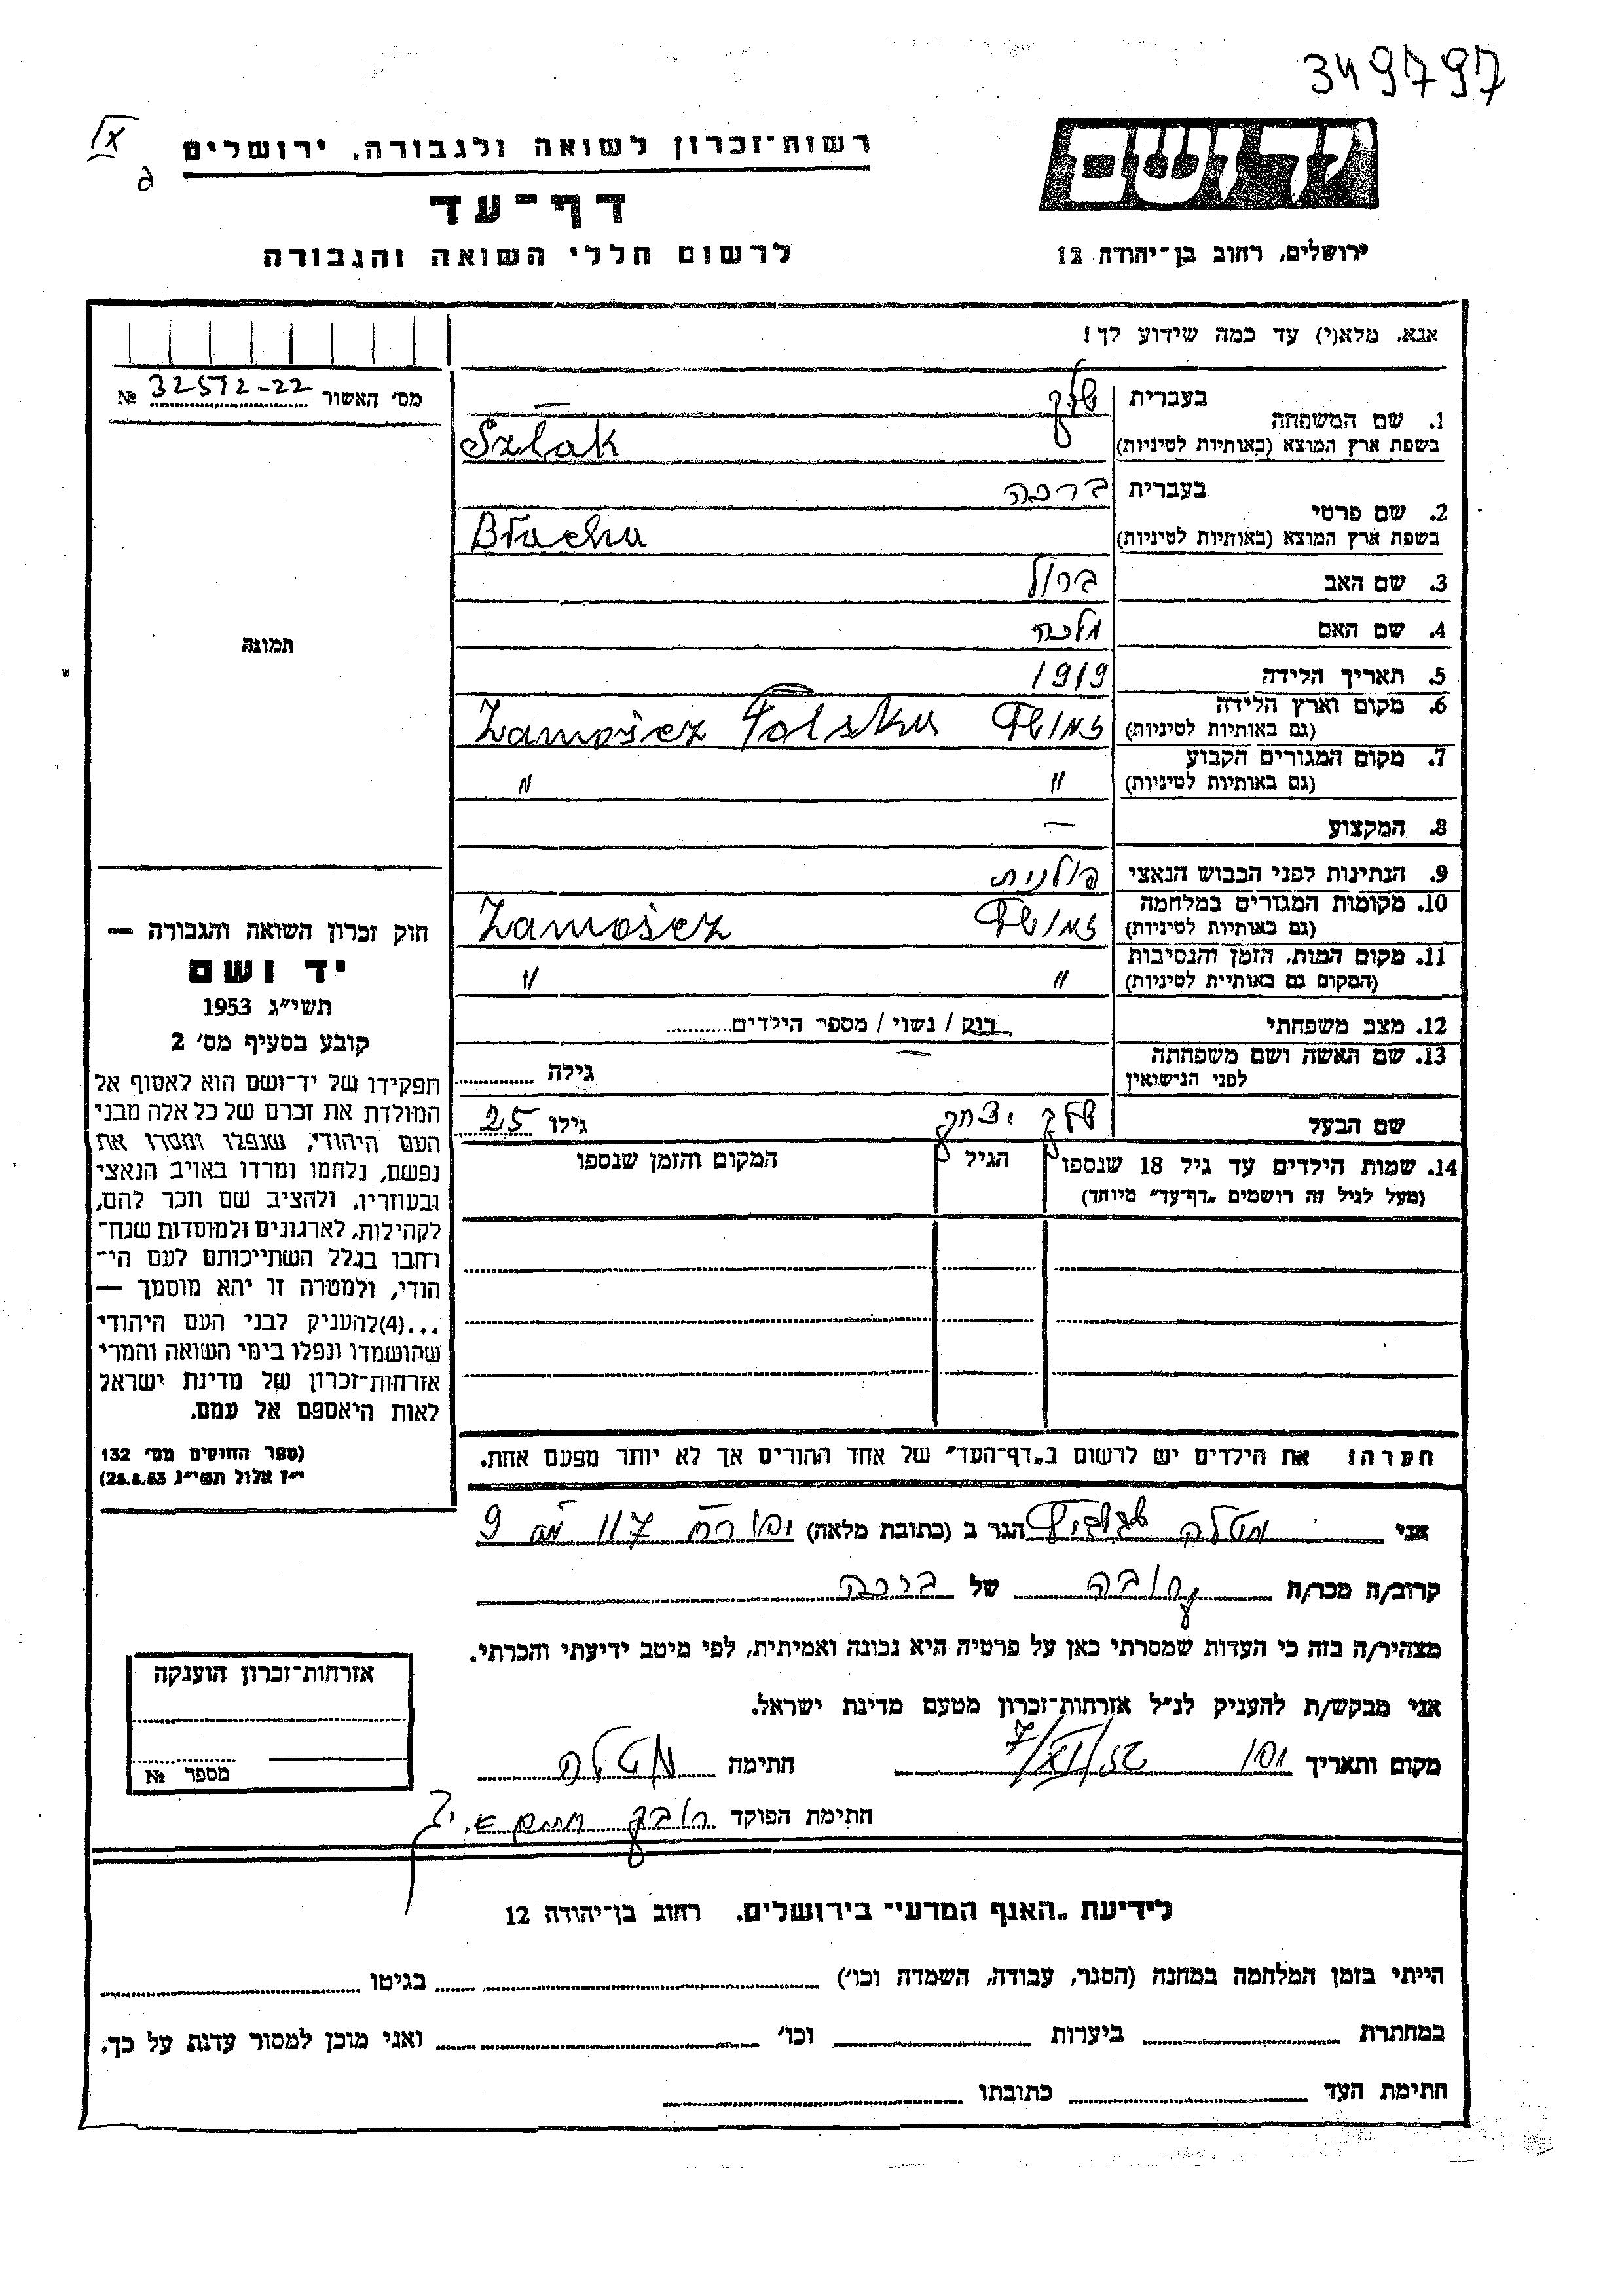 349797
IX
6
יד ושם
ירושלים, רחוב בן־יהודה 12
רשות־זכרון לשואה ולגבורה, ירושלים
דף־עד
לרשום חללי השואה והגבורה
אנא, מלא(י) עד כמה שידוע לך!
מס' האשור 32572-22 №
תמונה
חוק זכרון השואה והגבורה —
יד ושם
תשי״ג 1953
קובע בסעיף מס' 2
תפקידו של יד־ושם הוא לאסוף אל
המולדת את זכרם של כל אלה מבני
העם היהודי, שנפלו ומסרו את
נפשם, נלחמו ומרדו באויב הנאצי
ובעוזריו, ולהציב שם וזכר להם,
לקהילות, לארגונים ולמוסדות שנח־
רחבו בגלל השתייכותם לעם הי־
הודי, ולמטרה זו יהא מוסמך —
...(4)להעניק לבני העם היהודי
שהושמדו ונפלו בימי השואה והמרי
אזרחות־זכרון של מדינת ישראל
לאות היאספם אל עמם.
(ספר החוקים מס' 132
י״ז אלול תשי״ג, 28.8.53)
1. שם המשפחה
בעברית שלק
בשפת ארץ המוצא (באותיות לטיניות) Szlak
2. שם פרטי
בעברית ברכה
בשפת ארץ המוצא (באותיות לטיניות) Bracha
3. שם האב
4. שם האם מלכה
5. תאריך הלידה 1919
6. מקום וארץ הלידה
(גם באותיות לטיניות) זמושץ Zamoścz Polska
7. מקום המגורים הקבוע
(גם באותיות לטיניות) " "
8. המקצוע —
9. הנתינות לפני הכבוש הנאצי פולנית
10. מקומות המגורים במלחמה
(גם באותיות לטיניות) זמושץ Zamoścz
11. מקום המות, הזמן והנסיבות
(המקום גם באותיית לטיניות) " "
12. מצב משפחתי רוק / נשוי / מספר הילדים
13. שם האשה ושם משפחתה
לפני הנישואין — גילה
שם הבעל שלק יצחק גילו 25
14. שמות הילדים עד גיל 18 שנספו הגיל המקום והזמן שנספו
(מעל לגיל זה רושמים „דף־עד״ מיוחד)
חערה: את הילדים יש לרשום ב„דף־העד״ של אחד ההורים אך לא יותר מפעם אחת.
אני מטלה הגר ב (כתובת מלאה) 9
קרוב/ה מכר/ה קרובה של ברכה
מצהיר/ה בזה כי העדות שמסרתי כאן על פרטיה היא נכונה ואמיתית, לפי מיטב ידיעתי והכרתי.
אני מבקש/ת להעניק לנ״ל אזרחות־זכרון מטעם מדינת ישראל.
מקום ותאריך חתימה מטלה
חתימת הפוקד
אזרחות־זכרון הוענקה
מספר №
לידיעת „האגף המדעי״ בירושלים, רחוב בן־יהודה 12
הייתי בזמן המלחמה במחנה (הסגר, עבודה, השמדה וכו') בגיטו
במחתרת ביערות וכו' ואני מוכן למסור עדות על כך.
חתימת העד כתובתו